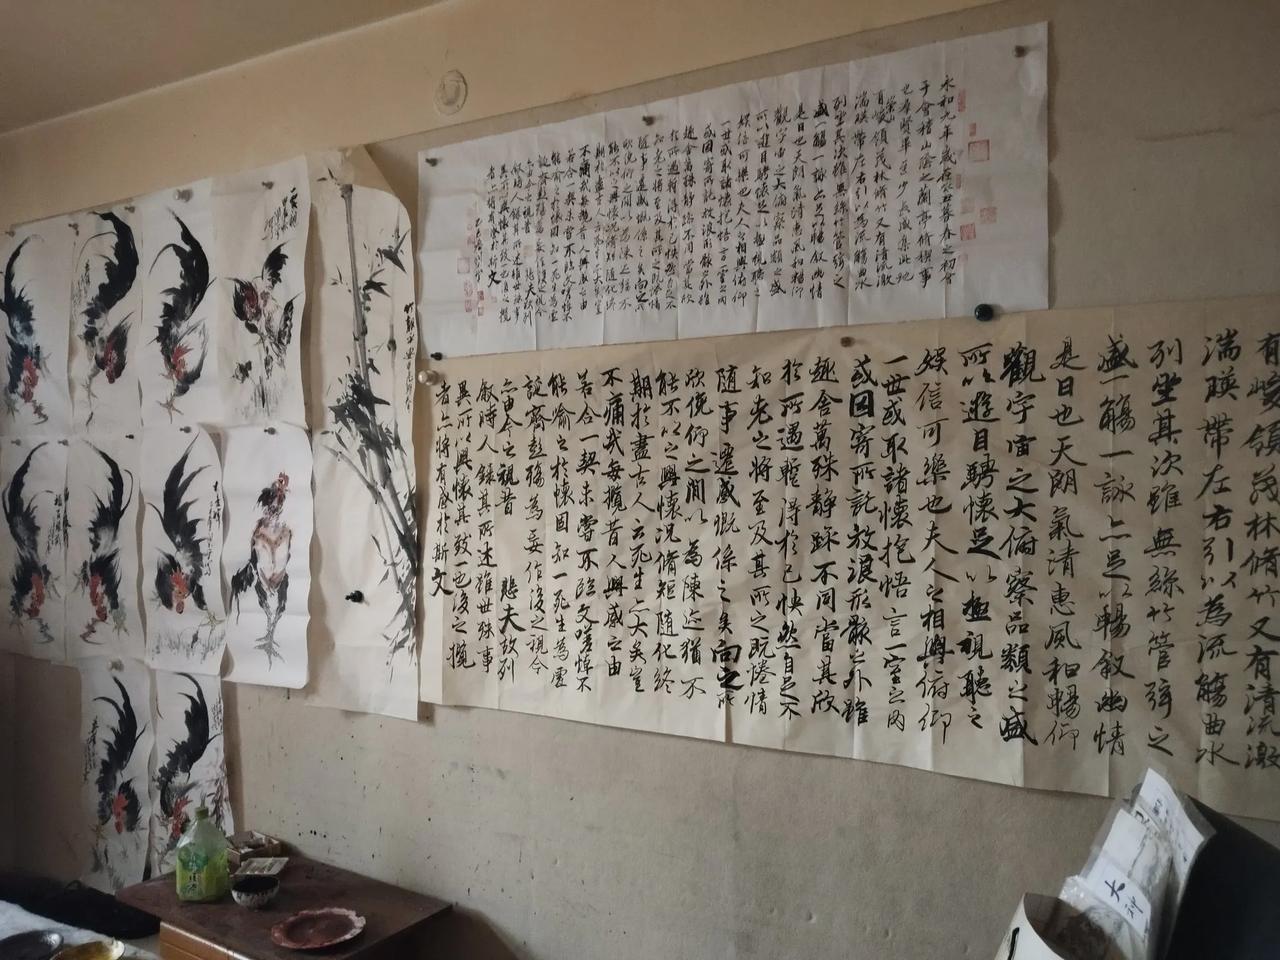 永和九年歲在癸丑暮春之初會
于會稽山陰之蘭亭脩禊事
也羣賢畢至少長咸集此地
崇山
有峻領茂林脩竹又有清流激
湍暎帶左右引以為流觴曲水
列坐其次雖無絲竹管弦之
盛一觴一詠亦足以暢敘幽情
是日也天朗氣清惠風和暢仰
觀宇宙之大俯察品類之盛
所以遊目騁懷足以極視聽之
娛信可樂也夫人之相與俯仰
一世或取諸懷抱悟言一室之內
或因寄所託放浪形骸之外雖
趣舍萬殊靜躁不同當其欣
於所遇暫得於己快然自足不
知老之將至及其所之既惓情
隨事遷感慨係之矣向之所
欣俛仰之間以為陳迹猶不
能不以之興懷況脩短隨化終
期於盡古人云死生亦大矣豈
不痛哉每攬昔人興感之由
若合一契未嘗不臨文嗟悼不
能喻之於懷固知一死生為虛
誕齊彭殤為妄作後之視今
亦由今之視昔 悲夫故列
敘時人錄其所述雖世殊事
異所以興懷其致一也後之攬
者亦將有感於斯文
有峻領茂林脩竹又有清流激
湍暎帶左右引以為流觴曲水
列坐其次雖無絲竹管弦之
盛一觴一詠亦足以暢敘幽情
是日也天朗氣清惠風和暢仰
觀宇宙之大俯察品類之盛
所以遊目騁懷足以極視聽之
娛信可樂也夫人之相與俯仰
一世或取諸懷抱悟言一室之內
或因寄所託放浪形骸之外雖
趣舍萬殊靜躁不同當其欣
於所遇暫得於己快然自足不
知老之將至及其所之既惓情
隨事遷感慨係之矣向之所
欣俛仰之間以為陳迹猶不
能不以之興懷況脩短隨化終
期於盡古人云死生亦大矣豈
不痛哉每攬昔人興感之由
若合一契未嘗不臨文嗟悼不
能喻之於懷固知一死生為虛
誕齊彭殤為妄作後之視今
亦由今之視昔 悲夫故列
敘時人錄其所述雖世殊事
異所以興懷其致一也後之攬
者亦將有感於斯文